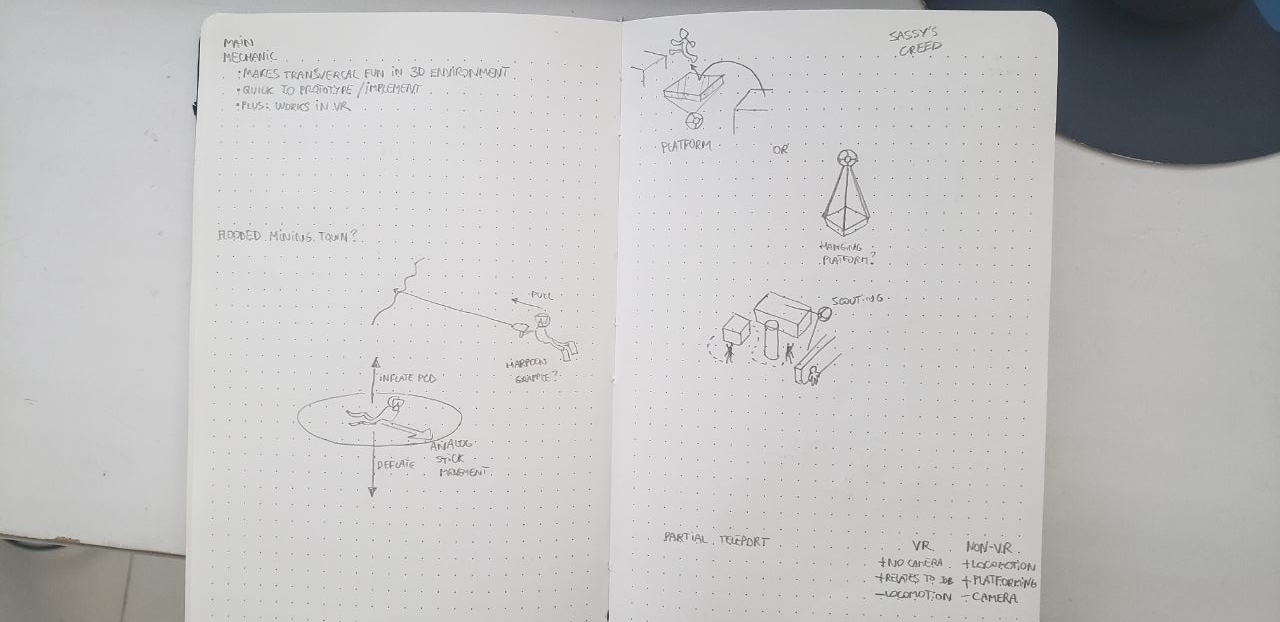 MAIN
MECHANIC
• MAKES TRANSVERCAL FUN IN 3D ENVIRONMENT
• QUICK TO PROTOTYPE / IMPLEMENT
• PLUS: WORKS IN VR
FLOODED MINING TOWN?
PULL
HARPOON
GRAPPLE?
INFLATE PCD
ANALOG
STICK
MOVEMENT
DEFLATE
SASSY'S
CREED
PLATFORM
OR
HANGING
PLATFORM?
SCOUTING
PARTIAL TELEPORT
VR NON-VR
+NO CAMERA +LOCOMOTION
+RELATES TO +PLATFORMING
-LOCOMOTION -CAMERA